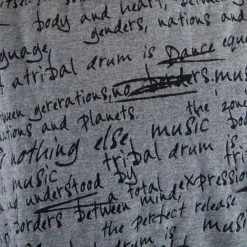 itself
body and heart, between
genders, nations and
language,
a tribal drum is Dance equa
between generations, no borders. mus
nations and planets. the zon
nothing else, music bod
music tribal drum is
and understood by
a total expression
borders between mind,
the perfect release